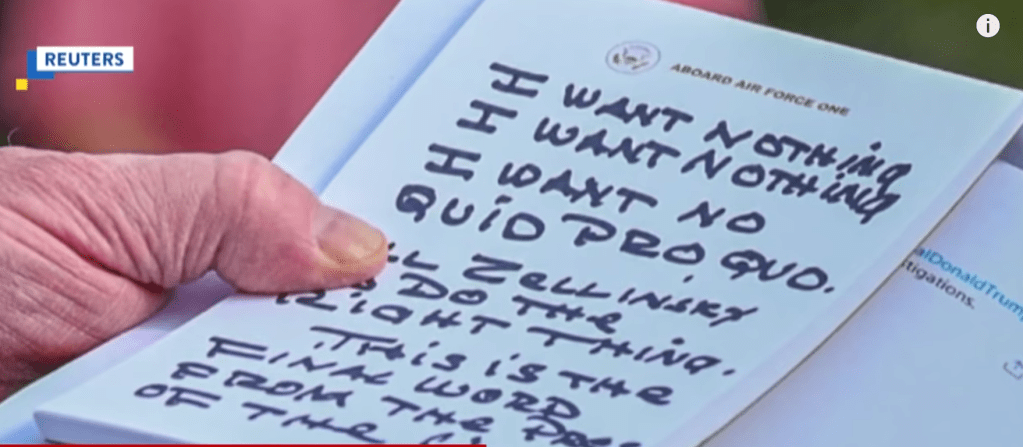 REUTERS
ABOARD AIR FORCE ONE
I WANT NOTHING
I WANT NOTHING
I WANT NO
QUID PRO QUO.
ZELLINSKY
DO THE
RIGHT THING.
THIS IS THE
FINAL WORD
FROM THE PRES
OF THE
alDonaldTrump
tigations.